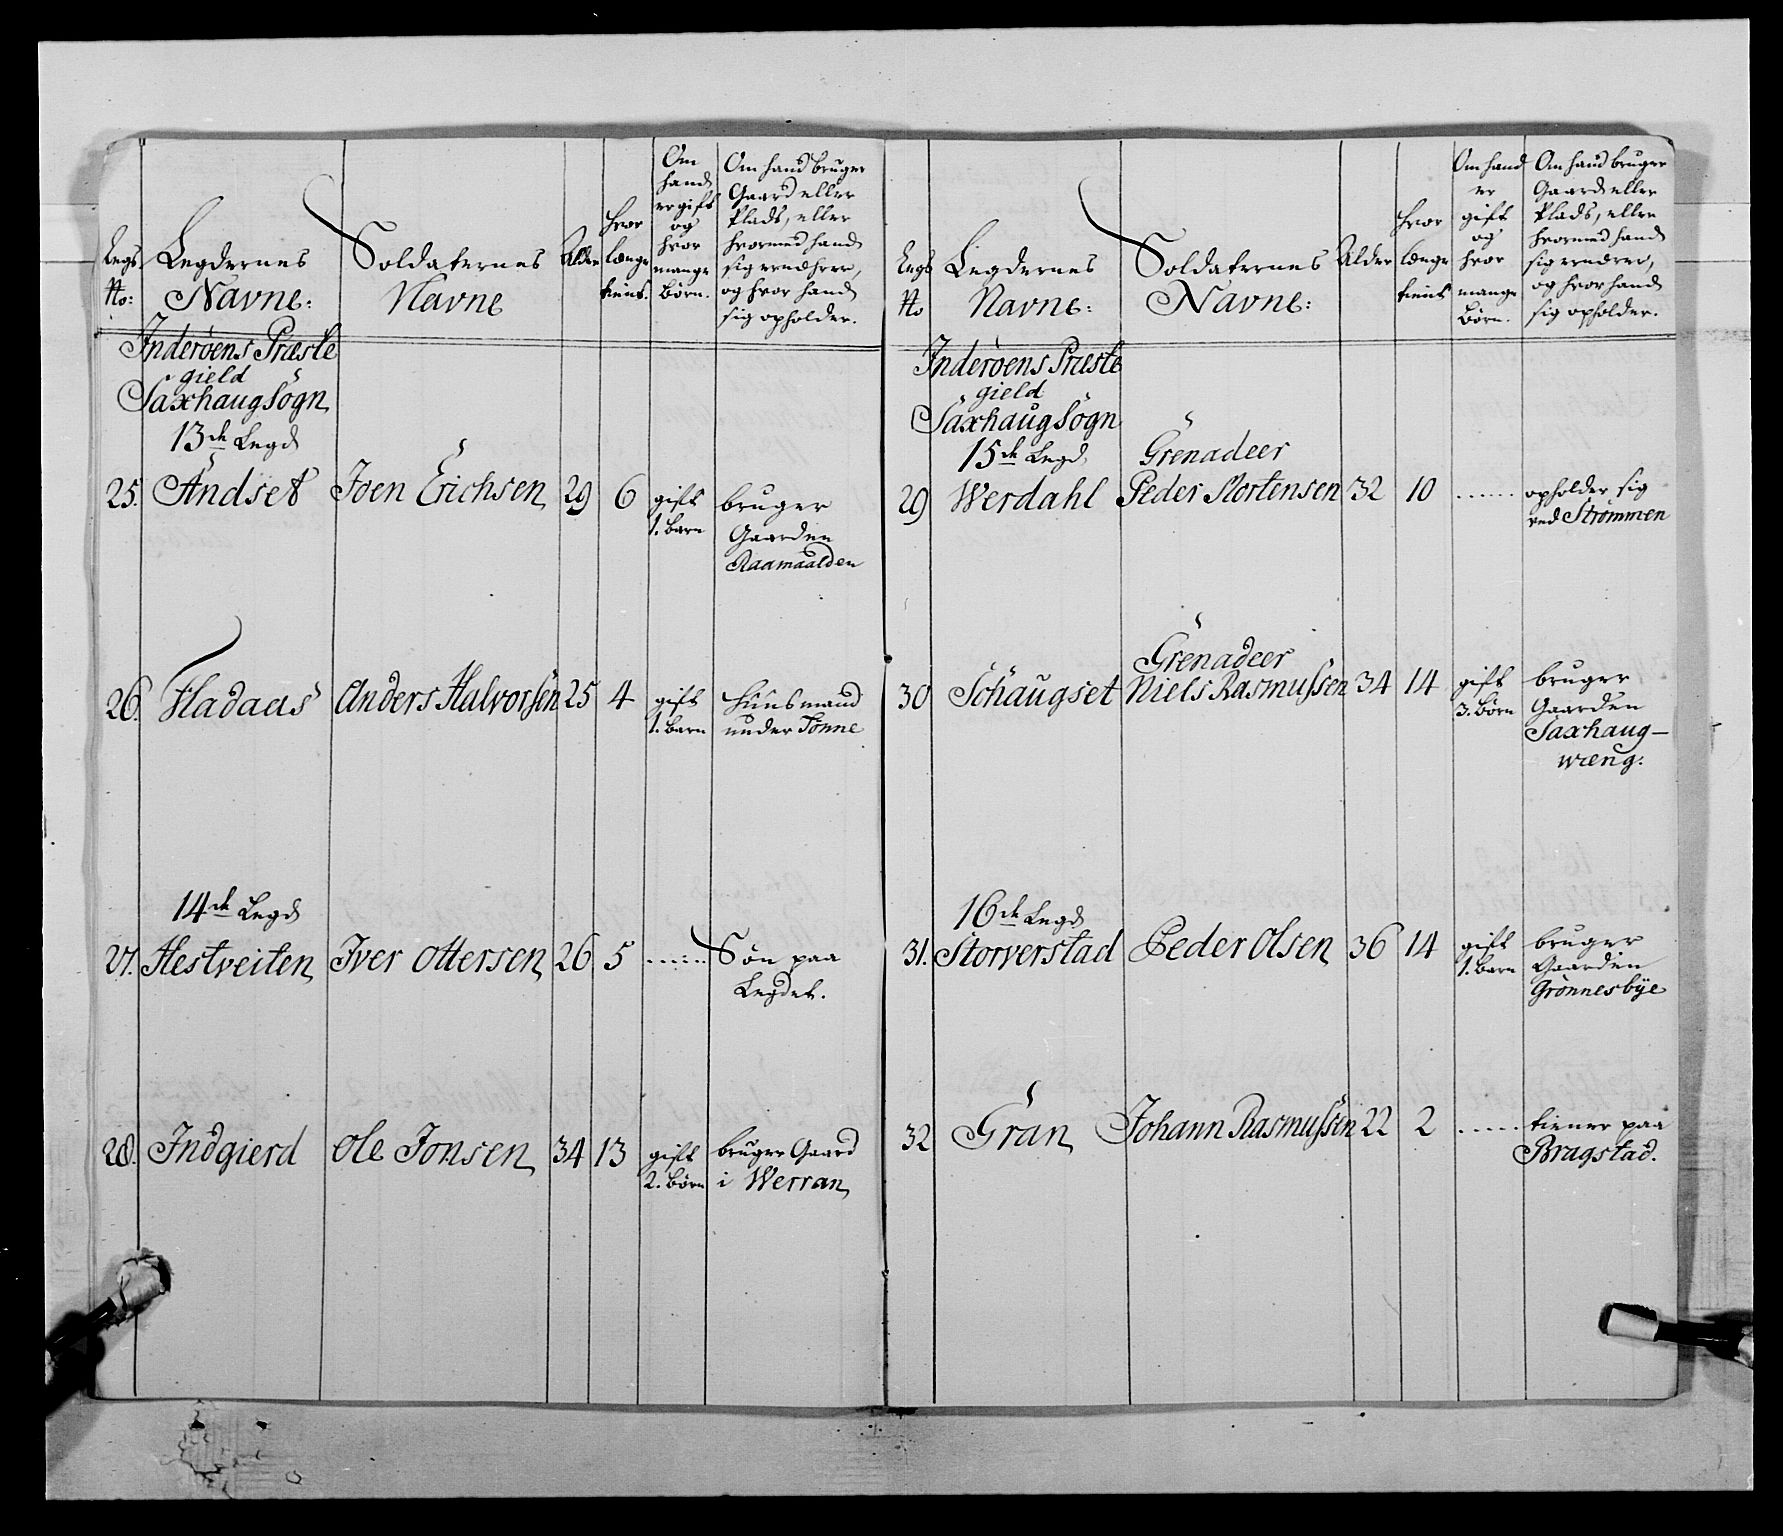 Legs No:
Legdernes Navne:
Soldaternes Navne
Alder
hvor længe tient.
Om hand er gift og hvor mange Børn.
Om hand bruger Gaard eller Plads, eller hvormed hand sig ernæhrer, og hvor hand sig opholder.
Inderöens Præste
gield
Saxhaug Sogn
13de Legd
25. Andset Joen Erichsen 29 6 gift 1. barn bruger Gaarden Raamaalden
26. Fladaas Anders Halvorsen 25 4 gift 1. barn Huusmand under Tønne
14de Legd
27. Hestveiten Iver Ottersen 26 5 ...... Søn paa Legdet.
28. Indgierd Ole Jonsen 34 13 gift 2. børn bruger Gaard i Werran
Legs No
Legdernes Navne:
Soldaternes Navne:
Alder
hvor længe tient
Om hand er gift og hvor mange Børn.
Om hand bruger Gaard eller Plads, eller hvormed hand sig ernærer, og hvor hand sig opholder.
Inderöens Præste
gield
Saxhaug Sogn
15de Legd
29 Werdahl Grenadeer Peder Mortensen 32 10 ...... opholder sig ved Strømmen
30 Schaugset Grenadeer Niels Rasmussen 34 14 gift 3. børn bruger Gaarden Saxhaug-wreng:
16de Legd
31. Storverstad Peder Olsen 36 14 gift 1. barn bruger Gaarden Grønnesbÿe
32 Gran Johann Rasmussen 22 2 ..... tiener paa Bragstad.